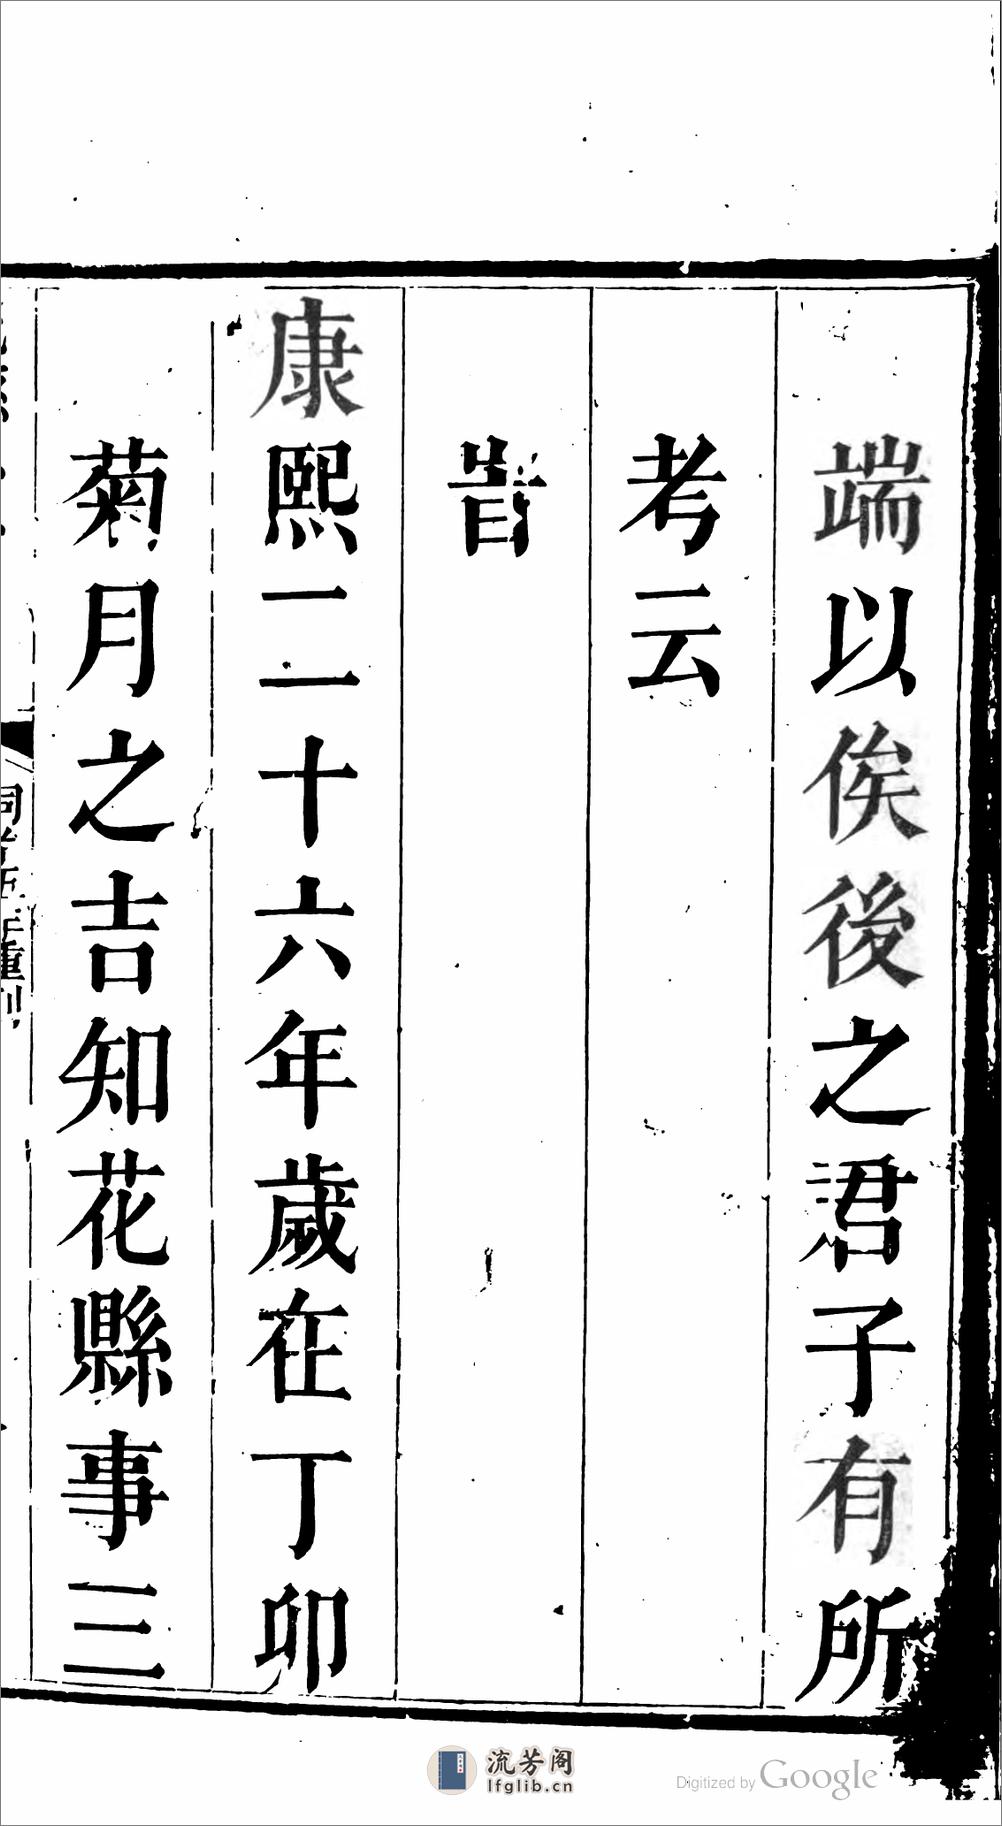 端以俟後之君子有所
考云
旹
康熙二十六年歲在丁卯
菊月之吉知花縣事三
流芳阁
lfglib.cn
Digitized by Google